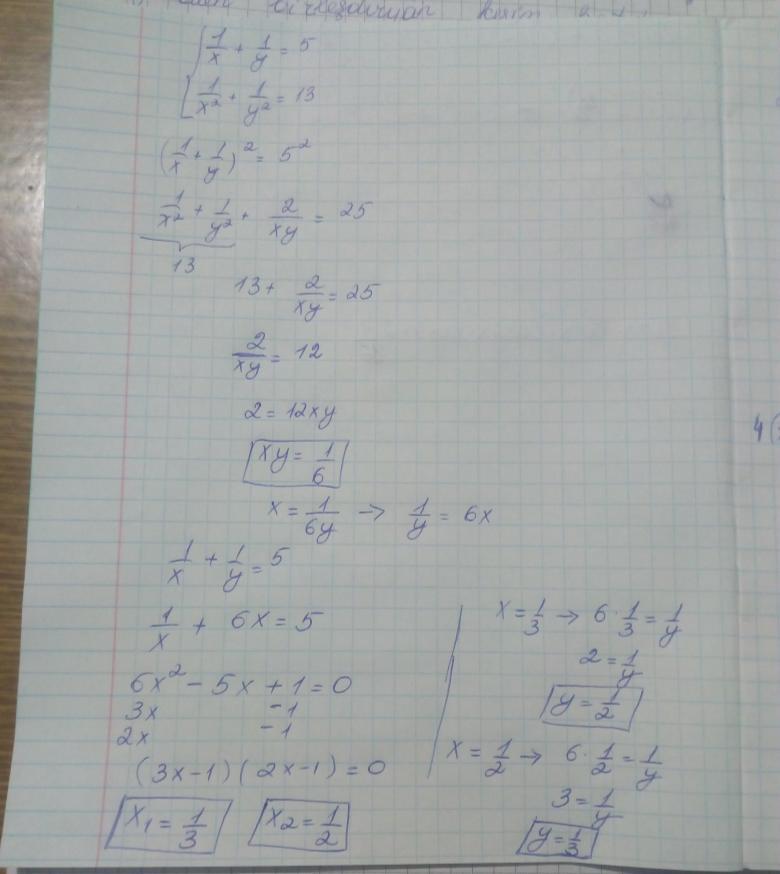 { 1/x + 1/y = 5
1/x² + 1/y² = 13
(1/x + 1/y)² = 5²
1/x² + 1/y² + 2/xy = 25
13
13 + 2/xy = 25
2/xy = 12
2 = 12xy
xy = 1/6
x = 1/6y → 1/y = 6x
1/x + 1/y = 5
1/x + 6x = 5
6x² - 5x + 1 = 0
3x -1
2x -1
(3x-1)(2x-1) = 0
x₁ = 1/3 x₂ = 1/2
x = 1/3 → 6 · 1/3 = 1/y
2 = 1/y
y = 1/2
x = 1/2 → 6 · 1/2 = 1/y
3 = 1/y
y = 1/3
4(